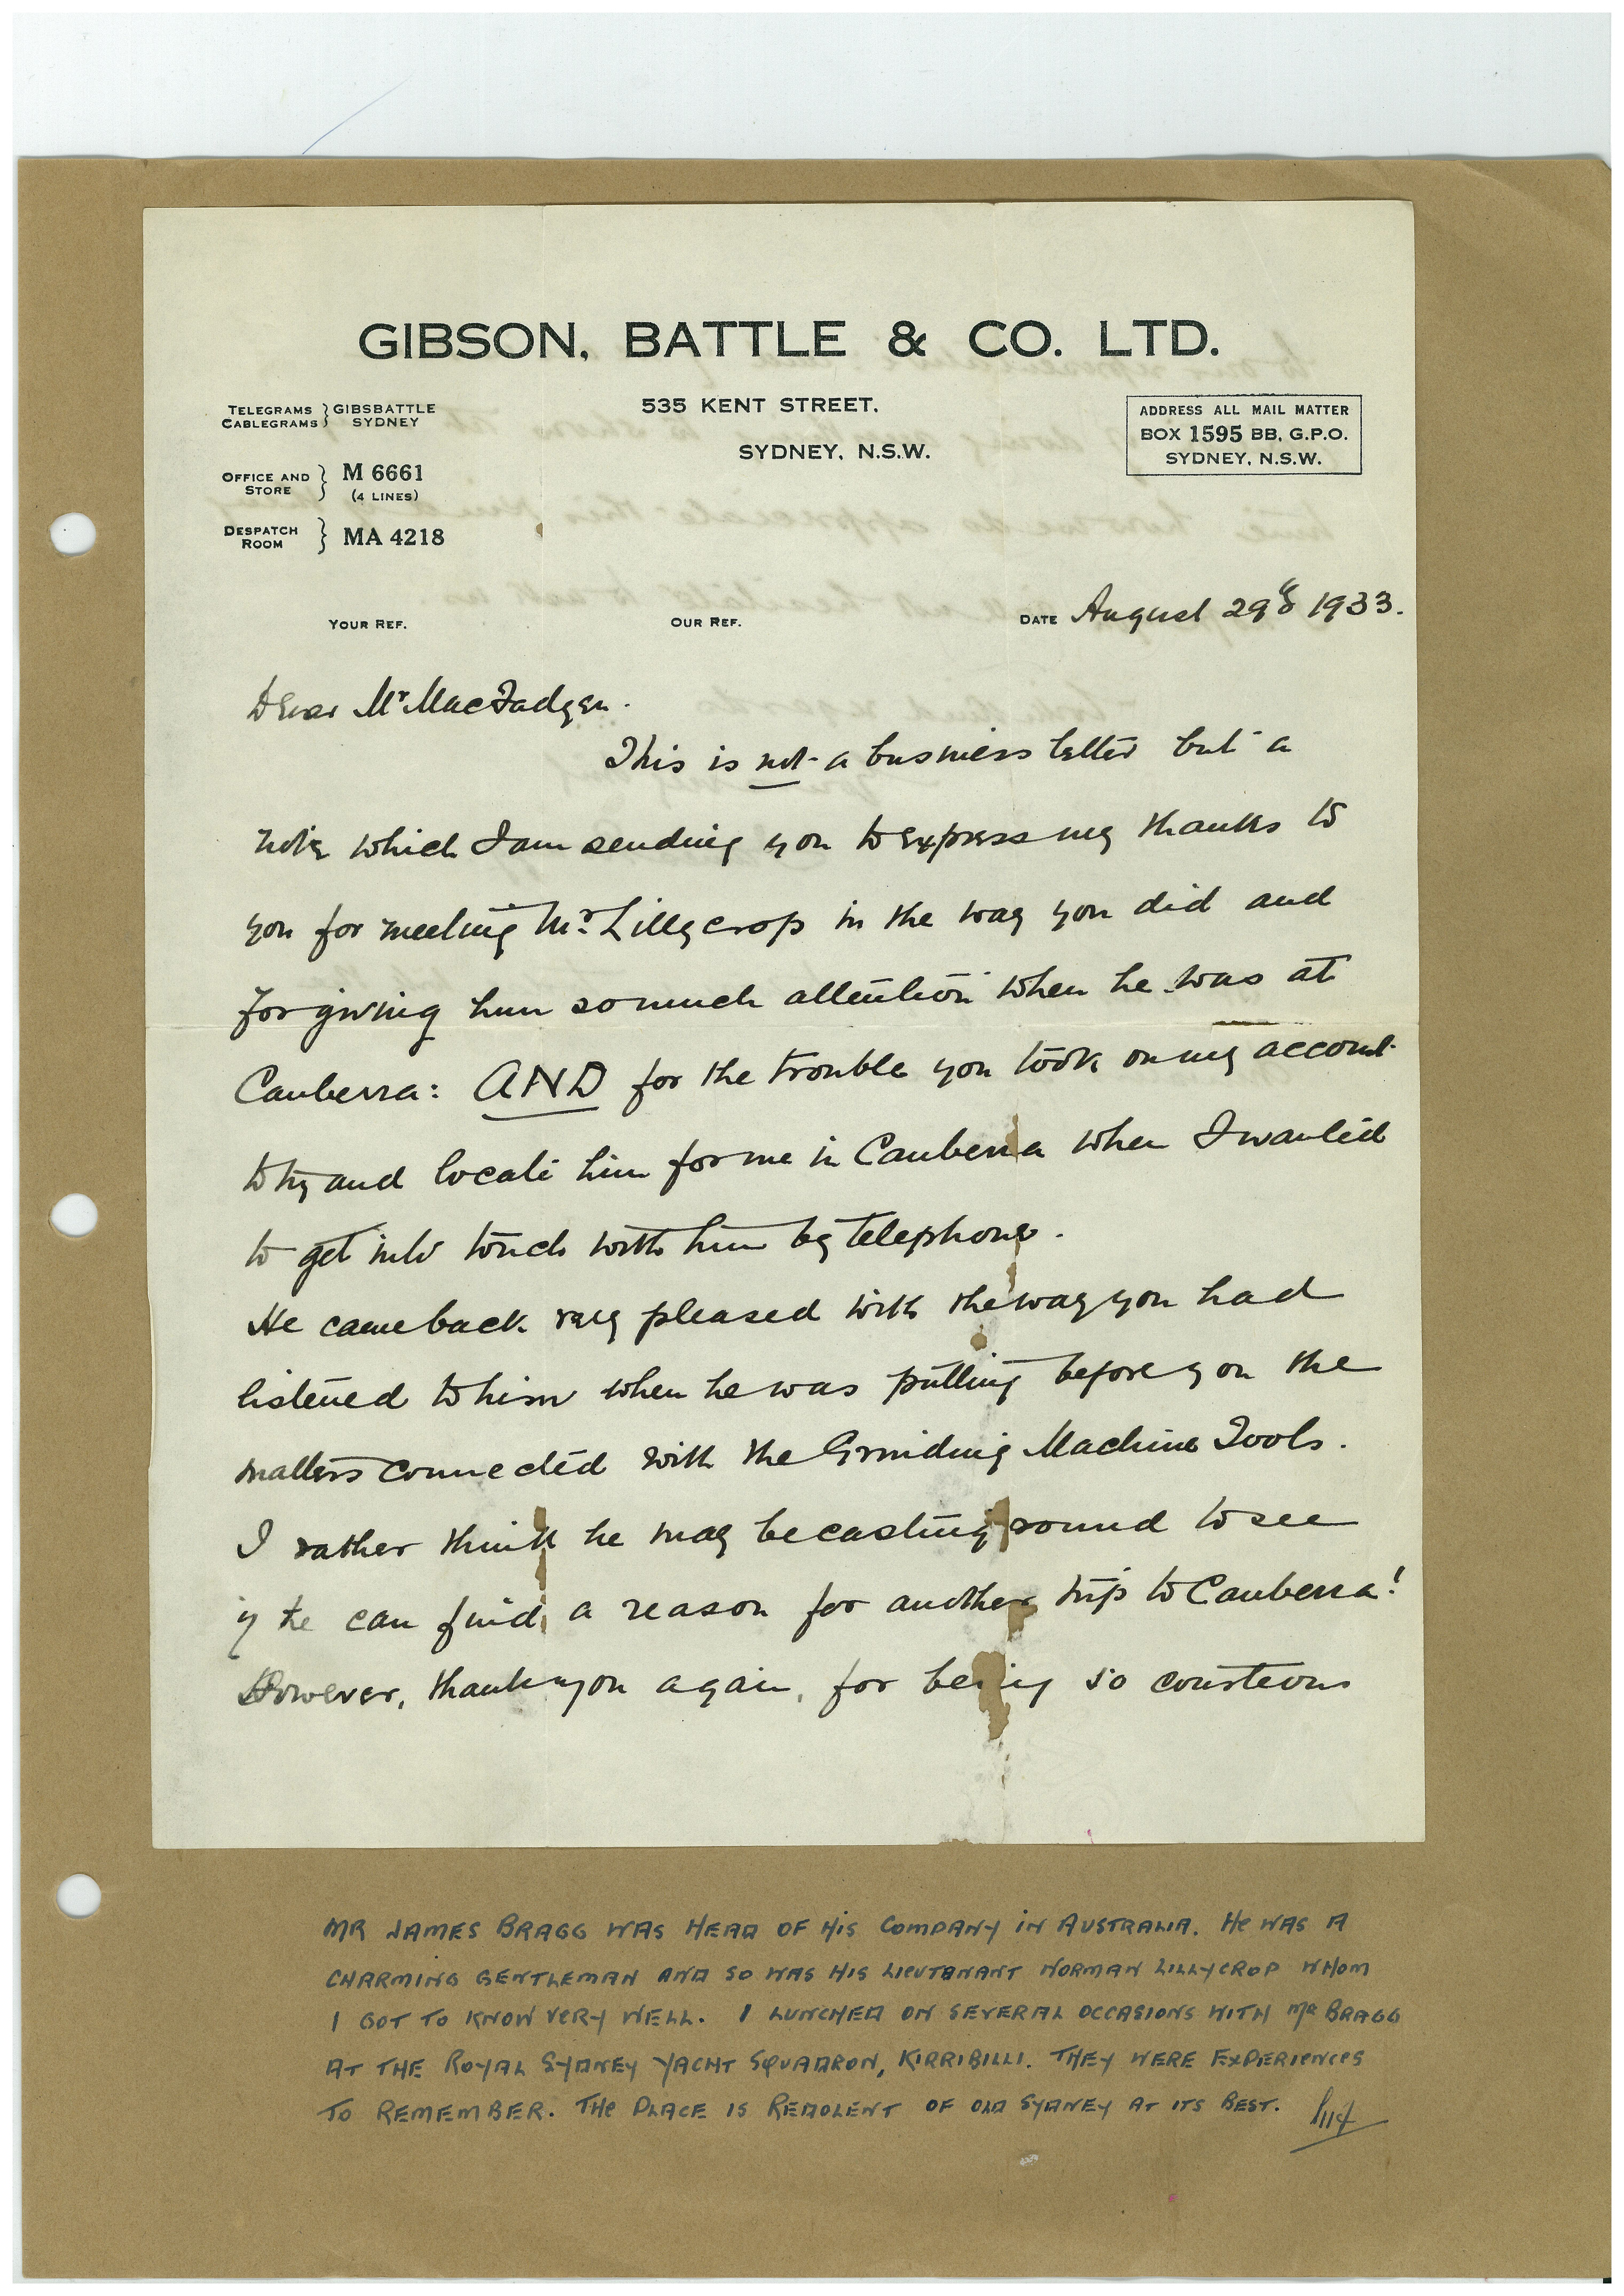 GIBSON, BATTLE & CO. LTD.
TELEGRAMS } GIBSBATTLE
CABLEGRAMS } SYDNEY
535 KENT STREET.
SYDNEY, N.S.W.
ADDRESS ALL MAIL MATTER
BOX 1595 BB, G.P.O.
SYDNEY, N.S.W.
OFFICE AND STORE } M 6661
(4 LINES)
DESPATCH ROOM } MA 4218
YOUR REF. OUR REF. DATE August 29th 1933.
Dear Mr MacFadyen.
This is not a business letter but a
note which I am sending you to express my thanks to
you for meeting Mr. Lillycrop in the way you did and
for giving him so much attention when he was at
Canberra: AND for the trouble you took on my account
to try and locate him for me in Canberra when I wanted
to get into touch with him by telephone.
He came back very pleased with the way you had
listened to him when he was putting before you the
matters connected with the Grinding Machine Tools.
I rather think he may be casting round to see
if he can find a reason for another trip to Canberra!
However, thank you again, for being so courteous
MR JAMES BRAGG WAS HEAD OF HIS COMPANY IN AUSTRALIA. HE WAS A
CHARMING GENTLEMAN AND SO WAS HIS LIEUTENANT NORMAN LILLYCROP WHOM
I GOT TO KNOW VERY WELL. I LUNCHED ON SEVERAL OCCASIONS WITH MR BRAGG
AT THE ROYAL SYDNEY YACHT SQUADRON, KIRRIBILLI. THEY WERE EXPERIENCES
TO REMEMBER. THE PLACE IS REDOLENT OF OLD SYDNEY AT ITS BEST.